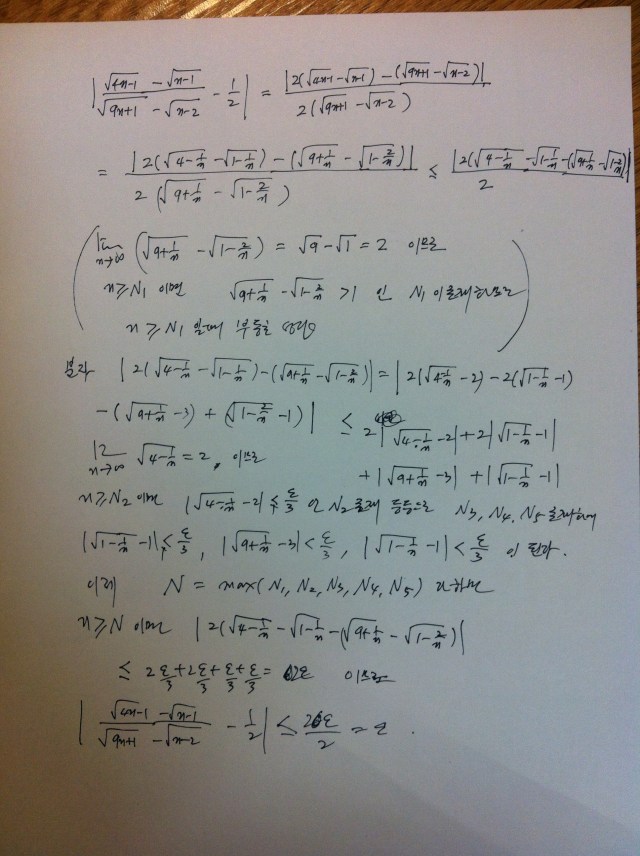 |(√(4n-1) - √(n-1))/(√(9n+1) - √(n-2)) - 1/2| = |2(√(4n-1) - √(n-1)) - (√(9n+1) - √(n-2))| / 2(√(9n+1) - √(n-2))
= |2(√(4-1/n) - √(1-1/n)) - (√(9+1/n) - √(1-2/n))| / 2(√(9+1/n) - √(1-2/n)) ≤ |2(√(4-1/n) - √(1-1/n) - (√(9+1/n) - √(1-2/n))| / 2
lim n→∞ (√(9+1/n) - √(1-2/n)) = √9 - √1 = 2 이므로
n ≥ N₁ 이면 √(9+1/n) - √(1-2/n) > 1 인 N₁ 이 존재하므로
n ≥ N₁ 일때 부등호 성립
분자 |2(√(4-1/n) - √(1-1/n)) - (√(9+1/n) - √(1-2/n))| = |2(√(4-1/n) - 2) - 2(√(1-1/n) - 1)
- (√(9+1/n) - 3) + (√(1-2/n) - 1)| ≤ 2|√(4-1/n) - 2| + 2|√(1-1/n) - 1|
+ |√(9+1/n) - 3| + |√(1-1/n) - 1|
lim n→∞ √(4-1/n) = 2, 이므로
n ≥ N₂ 이면 |√(4-1/n) - 2| < ε/3 인 N₂ 존재 등등으로 N₃, N₄, N₅ 존재하여
|√(1-1/n) - 1| < ε/3, |√(9+1/n) - 3| < ε/3, |√(1-1/n) - 1| < ε/3 이 된다.
이제 N = max(N₁, N₂, N₃, N₄, N₅) 라하면
n ≥ N 이면 |2(√(4-1/n) - √(1-1/n) - (√(9+1/n) - √(1-2/n))|
≤ 2ε/3 + 2ε/3 + ε/3 + ε/3 = 2ε 이므로
|(√(4n-1) - √(n-1))/(√(9n+1) - √(n-2)) - 1/2| ≤ 2ε/2 = ε.